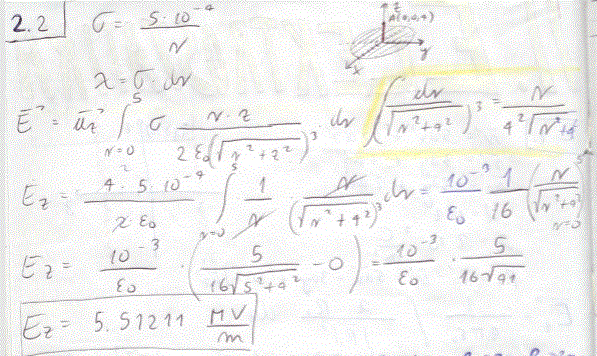 2.2 σ = 5·10⁻⁴ / r
z A(0,0,4) y x
λ = σ · dr
E⃗ = u⃗z ∫_{r=0}^{5} σ r·z / 2ε₀(√(r²+z²))³ dr ∫ dr / (√(r²+4²))³ = r / 4²√(r²+4²)
Ez = 4·5·10⁻⁴ / 2·ε₀ ∫_{r=0}^{5} 1/r r / (√(r²+4²))³ dr = 10⁻³/ε₀ 1/16 (r / √(r²+4²))_{r=0}^{5}
Ez = 10⁻³/ε₀ · (5 / 16√(5²+4²) − 0) = 10⁻³/ε₀ · 5 / 16√41
Ez = 5.51211 MV/m